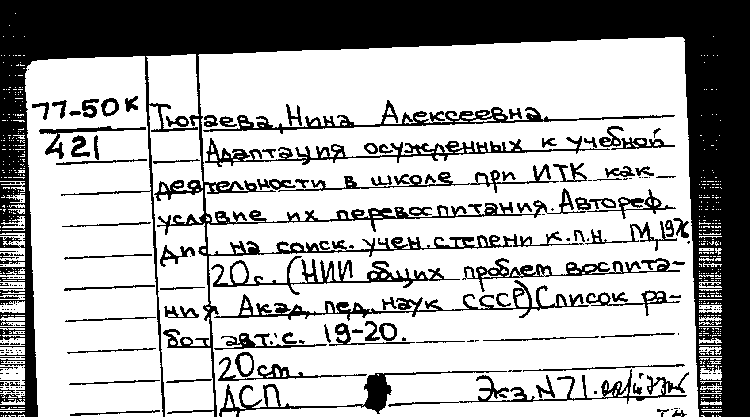 77-50к Тюгаева, Нина Алексеевна.
421 Адаптация осужденных к учебной
деятельности в школе при ИТК как
условие их перевоспитания. Автореф.
дис. на соиск. учен. степени к.п.н. М, 1976
20с. (НИИ общих проблем воспита-
ния Акад. пед. наук СССР) Список ра-
бот авт.: с. 19-20.
20см.
ДСП. Экз. N 71.